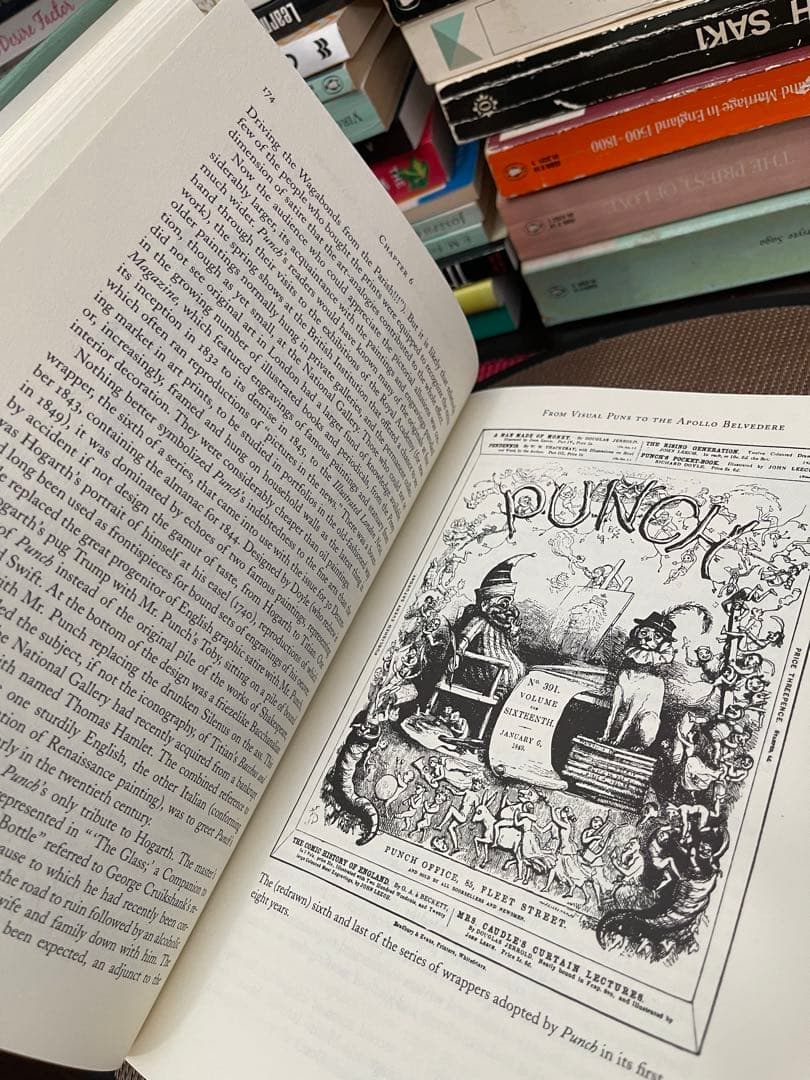 Desire Factor
Learn
SAKI
and Marriage in England 1500-1800
THE PRIEST OF LOVE
Saga
174
CHAPTER 6
Driving the Wagabonds from the Parish!!!"). But it is likely that
few of the people who bought the prints were equipped to recognize
dimension of satire that the art-analogies contributed to the
Now, the audience who could appreciate the pictorial allusions
siderably larger, its acquaintance with the paintings and
much wider. Punch's readers would have known many of the
hand through their visits to the exhibitions of the Royal Academy
work), the spring shows at the British Institution that offered
older paintings normally hung in private galleries, and the
tion, though as yet small, at the National Gallery. Those
did not see original art in London had a large
in the growing number of illustrated books and periodicals, from the
Magazine, which featured engravings of famous paintings
its inception in 1832 to its demise in 1845, to the Illustrated London
which often ran reproductions of pictures in the news. There was
ing market in art prints to be studied in portfolios
or, increasingly, framed and hung on household walls as the latest thing
interior decoration. They were considerably cheaper than oil paintings.
Nothing better symbolized Punch's indebtedness to the fine arts than
wrapper, the sixth of a series, that came into use with the issue for
ber 1843, containing the almanac for 1844. Designed by Doyle (who
in 1849), it was dominated by echoes of two famous paintings, representing
by accident if not design the gamut of taste, from Hogarth to Titian. One
was Hogarth's portrait of himself at his easel (1740), reproductions of which
d long been used as frontispieces for bound sets of engravings of his
e replaced the great progenitor of English graphic satire with Mr. Punch,
garth's pug Trump with Mr. Punch's Toby, sitting on a pile of bound
of Punch instead of the original pile of the works of Shakespeare,
d Swift. At the bottom of the design was a friezelike Bacchanalian
with Mr. Punch replacing the drunken Silenus on the ass. This
ed the subject, if not the iconography, of Titian's Bacchus and
he National Gallery had recently acquired from a bankrupt
ith named Thomas Hamlet. The combined reference to
one sturdily English, the other Italian (conforming
tion of Renaissance painting), was to greet Punch's
rly in the twentieth century.
Punch's only tribute to Hogarth. The master's
epresented in "'The Glass,' a Companion to
Bottle" referred to George Cruikshank's
ause to which he had recently been con-
the road to ruin followed by an alcoholic
wife and family down with him. The
been expected, an adjunct to the
FROM VISUAL PUNS TO THE APOLLO BELVEDERE
A MAN MADE OF MONEY. By DOUGLAS JERROLD.
PENDENNIS. By W. M. THACKERAY
THE RISING GENERATION.
JOHN LEECH.
PUNCH'S POCKET-BOOK. Illustrated by JOHN LEECH
RICHARD DOYLE.
PUNCH
PRICE THREEPENCE
No. 391.
VOLUME
THE
SIXTEENTH.
JANUARY 6,
1849.
PUNCH OFFICE, 85, FLEET STREET.
AND SOLD BY ALL BOOKSELLERS AND NEWSMEN.
THE COMIC HISTORY OF ENGLAND. By G. A. à BECKETT,
by JOHN LEECH.
MRS CAUDLE'S CURTAIN LECTURES.
By DOUGLAS JERROLD.
Bradbury & Evans, Printers, Whitefriars.
The (redrawn) sixth and last of the series of wrappers adopted by Punch in its first
eight years.